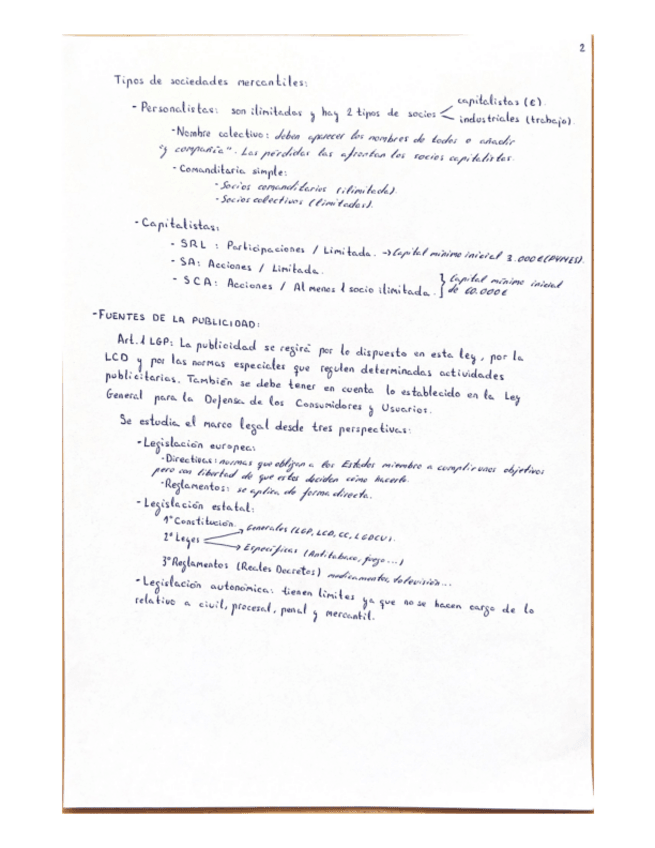 2
Tipos de sociedades mercantiles:
- Personalistas: son ilimitadas y hay 2 tipos de socios < capitalistas (€).
industriales (trabajo).
- Nombre colectivo: deben aparecer los nombres de todos o añadir
"y compañía". Las pérdidas las afrontan los socios capitalistas.
- Comanditaria simple:
- Socios comanditarios (ilimitada).
- Socios colectivos (limitadas).
- Capitalistas:
- SRL: Participaciones / Limitada. → Capital mínimo inicial 3.000€ (PYMES).
- SA: Acciones / Limitada.
- SCA: Acciones / Al menos 1 socio ilimitada. } Capital mínimo inicial
de 60.000€
- FUENTES DE LA PUBLICIDAD:
Art. 1 LGP: La publicidad se regirá por lo dispuesto en esta ley, por la
LCD y por las normas especiales que regulen determinadas actividades
publicitarias. También se debe tener en cuenta lo establecido en la Ley
General para la Defensa de los Consumidores y Usuarios.
Se estudia el marco legal desde tres perspectivas:
- Legislación europea:
- Directivas: normas que obligan a los Estados miembro a cumplir unos objetivos
pero con libertad de que estos deciden cómo hacerlo.
- Reglamentos: se aplica de forma directa.
- Legislación estatal:
1º Constitución.
2º Leyes → Generales (LGP, LCD, CC, LGDCU).
→ Específicas (Antitabaco, juego...)
3º Reglamentos (Reales Decretos) medicamentos, televisión...
- Legislación autonómica: tienen límites ya que no se hacen cargo de lo
relativo a civil, procesal, penal y mercantil.